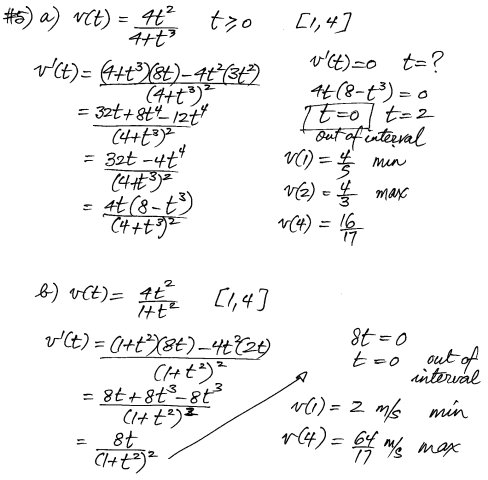 #5) a) v(t) = 4t²/(4+t³) t ≥ 0 [1,4]
v'(t) = ((4+t³)(8t) - 4t²(3t²))/(4+t³)²
= (32t + 8t⁴ - 12t⁴)/(4+t³)²
= (32t - 4t⁴)/(4+t³)²
= 4t(8 - t³)/(4+t³)²
v'(t) = 0 t = ?
4t(8-t³) = 0
t = 0 t = 2
out of interval
v(1) = 4/5 min
v(2) = 4/3 max
v(4) = 16/17
b) v(t) = 4t²/(1+t²) [1,4]
v'(t) = ((1+t²)(8t) - 4t²(2t))/(1+t²)²
= (8t + 8t³ - 8t³)/(1+t²)²
= 8t/(1+t²)²
8t = 0
t = 0 out of
interval
v(1) = 2 m/s min
v(4) = 64/17 m/s max